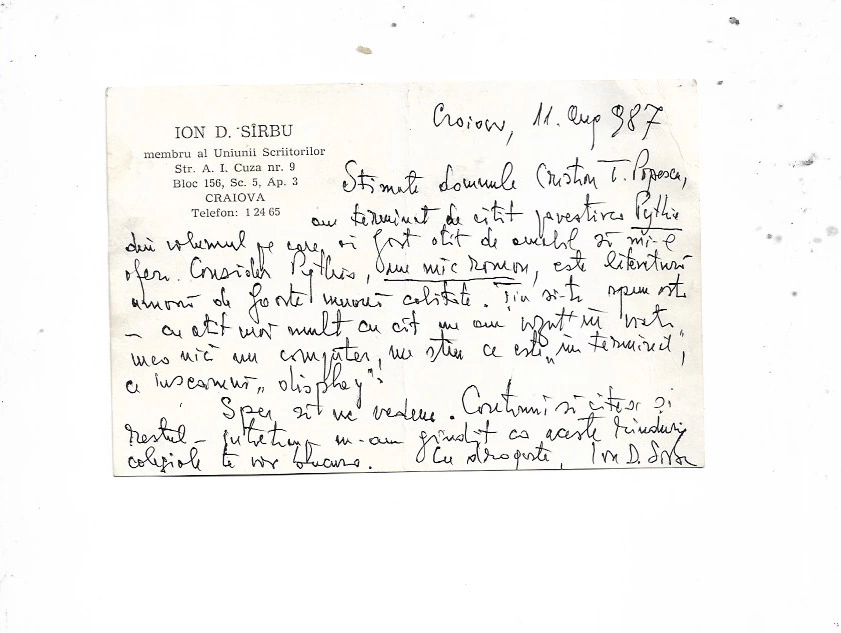 ION D. SÎRBU
membru al Uniunii Scriitorilor
Str. A. I. Cuza nr. 9
Bloc 156, Sc. 5, Ap. 3
CRAIOVA
Telefon: 1 24 65
Craiova, 11. Aug 987
Stimate domnule Cristian T. Popescu,
am terminat de citit povestirea Pythia
din volumul pe care ai fost atît de amabil să mi-l
oferi. Consider Pythia, un mic roman, este literatură
de foarte bună calitate. Țin să-ți spun asta
– cu atît mai mult cu cît nu am văzut în viața
mea nici un computer, nu știu ce este „un terminal",
ce înseamnă „display".
Sper să ne vedem. Continui să citesc și
restul – întretimp m-am gîndit ca aceste rînduri
colegiale te vor bucura. Cu dragoste, Ion D. Sîrbu